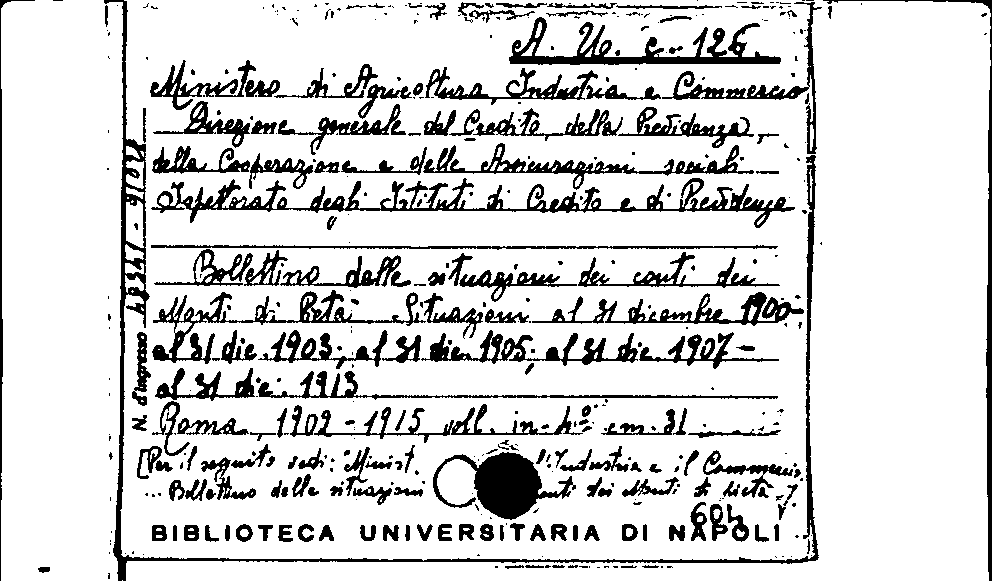 A. U. c. 126.
Ministero di Agricoltura, Industria e Commercio
Direzione generale del Credito, della Previdenza,
della Cooperazione e delle Assicurazioni sociali
Ispettorato degli Istituti di Credito e di Previdenza
Bollettino delle situazioni dei conti dei
Monti di Pietà Situazioni al 31 dicembre 1900-
al 31 dic. 1903; al 31 dic. 1905; al 31 dic. 1907 -
al 31 dic. 1913
Roma, 1902 - 1915, voll. in-4º cm. 31
[Per il seguito vedi: Minist. l'Industria e il Commercio.
... Bollettino delle situazioni conti dei Monti di pietà]
604
BIBLIOTECA UNIVERSITARIA DI NAPOLI
N. d'ingresso